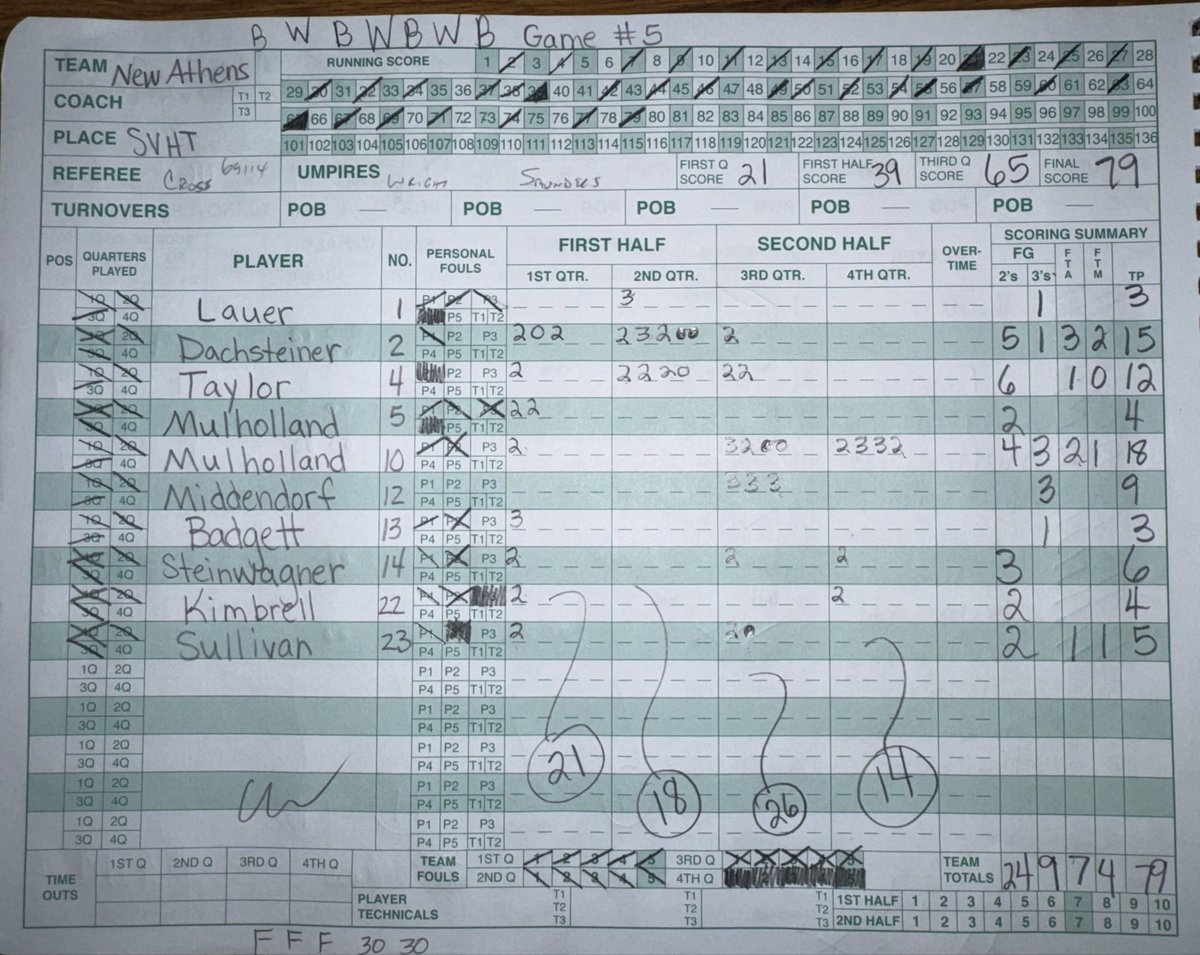 B W B W B W B Game #5
TEAM New Athens RUNNING SCORE 1 2 3 4 5 6 7 8 9 10 11 12 13 14 15 16 17 18 19 20 21 22 23 24 25 26 27 28
COACH T1 T2 T3 29 30 31 32 33 34 35 36 37 38 39 40 41 42 43 44 45 46 47 48 49 50 51 52 53 54 55 56 57 58 59 60 61 62 63 64
65 66 67 68 69 70 71 72 73 74 75 76 77 78 79 80 81 82 83 84 85 86 87 88 89 90 91 92 93 94 95 96 97 98 99 100
PLACE SVHT 101 102 103 104 105 106 107 108 109 110 111 112 113 114 115 116 117 118 119 120 121 122 123 124 125 126 127 128 129 130 131 132 133 134 135 136
REFEREE Cross 69114 UMPIRES Wright Saunders FIRST Q SCORE 21 FIRST HALF SCORE 39 THIRD Q SCORE 65 FINAL SCORE 79
TURNOVERS POB — POB — POB — POB — POB —
POS QUARTERS PLAYED PLAYER NO. PERSONAL FOULS FIRST HALF SECOND HALF OVER-TIME SCORING SUMMARY
1ST QTR. 2ND QTR. 3RD QTR. 4TH QTR. FG 2's 3's FTA FTM TP
1Q 2Q 3Q 4Q Lauer 1 P1 P2 P3 P5 T1 T2 3 1 3
1Q 2Q 3Q 4Q Dachsteiner 2 P1 P2 P3 P4 P5 T1 T2 202 23200 2 5 1 3 2 15
1Q 2Q 3Q 4Q Taylor 4 P2 P3 P4 P5 T1 T2 2 2220 22 6 1 0 12
1Q 2Q 3Q 4Q Mulholland 5 P1 P2 P3 P5 T1 T2 22 2 4
1Q 2Q 3Q 4Q Mulholland 10 P1 P2 P3 P4 P5 T1 T2 2 3200 2332 4 3 2 1 18
1Q 2Q 3Q 4Q Middendorf 12 P1 P2 P3 P4 P5 T1 T2 333 3 9
1Q 2Q 3Q 4Q Badgett 13 P1 P2 P3 P4 P5 T1 T2 3 1 3
1Q 2Q 3Q 4Q Steinwagner 14 P1 P2 P3 P4 P5 T1 T2 2 2 2 3 6
1Q 2Q 3Q 4Q Kimbrell 22 P1 P2 P4 P5 T1 T2 2 2 2 4
1Q 2Q 3Q 4Q Sullivan 23 P1 P3 P4 P5 T1 T2 2 20 2 1 1 5
1Q 2Q P1 P2 P3
3Q 4Q P4 P5 T1 T2
1Q 2Q P1 P2 P3
3Q 4Q P4 P5 T1 T2
1Q 2Q P1 P2 P3
3Q 4Q P4 P5 T1 T2
1Q 2Q P1 P2 P3
3Q 4Q P4 P5 T1 T2
1Q 2Q P1 P2 P3
3Q 4Q P4 P5 T1 T2
21 18 26 14
TIME OUTS 1ST Q 2ND Q 3RD Q 4TH Q TEAM FOULS 1ST Q 1 2 3 4 5 3RD Q 1 2 3 4 5 TEAM TOTALS 24 9 7 4 79
2ND Q 1 2 3 4 5 4TH Q
PLAYER TECHNICALS T1 T2 T3 T1 T2 T3 T1 T2 T3 1ST HALF 1 2 3 4 5 6 7 8 9 10
2ND HALF 1 2 3 4 5 6 7 8 9 10
F F F 30 30